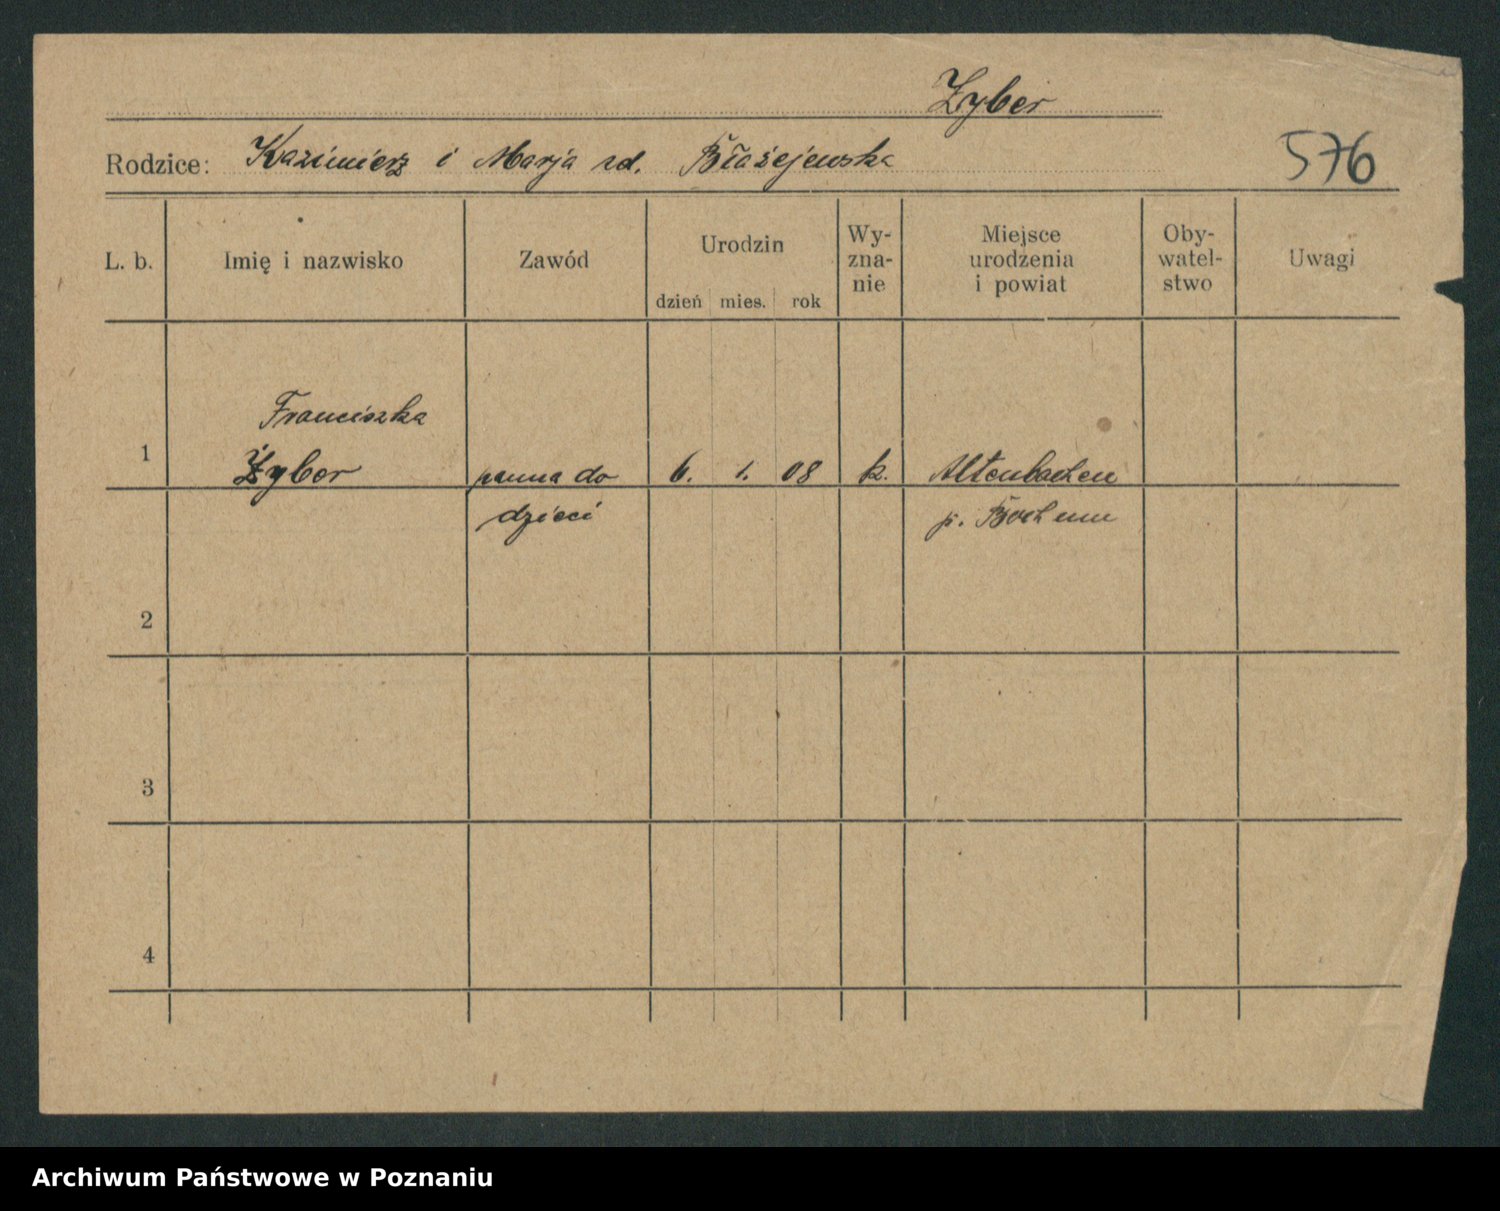 Żyber
Rodzice: Kazimierz i Marja zd. Błażejewska
576
L. b.
Imię i nazwisko
Zawód
Urodzin
dzień mies. rok
Wy-
zna-
nie
Miejsce
urodzenia
i powiat
Oby-
watel-
stwo
Uwagi
Franciszka
1 Żyber panna do 6. 1. 08 k. Altenbochen
dzieci p. Bochum
2
3
4
Archiwum Państwowe w Poznaniu